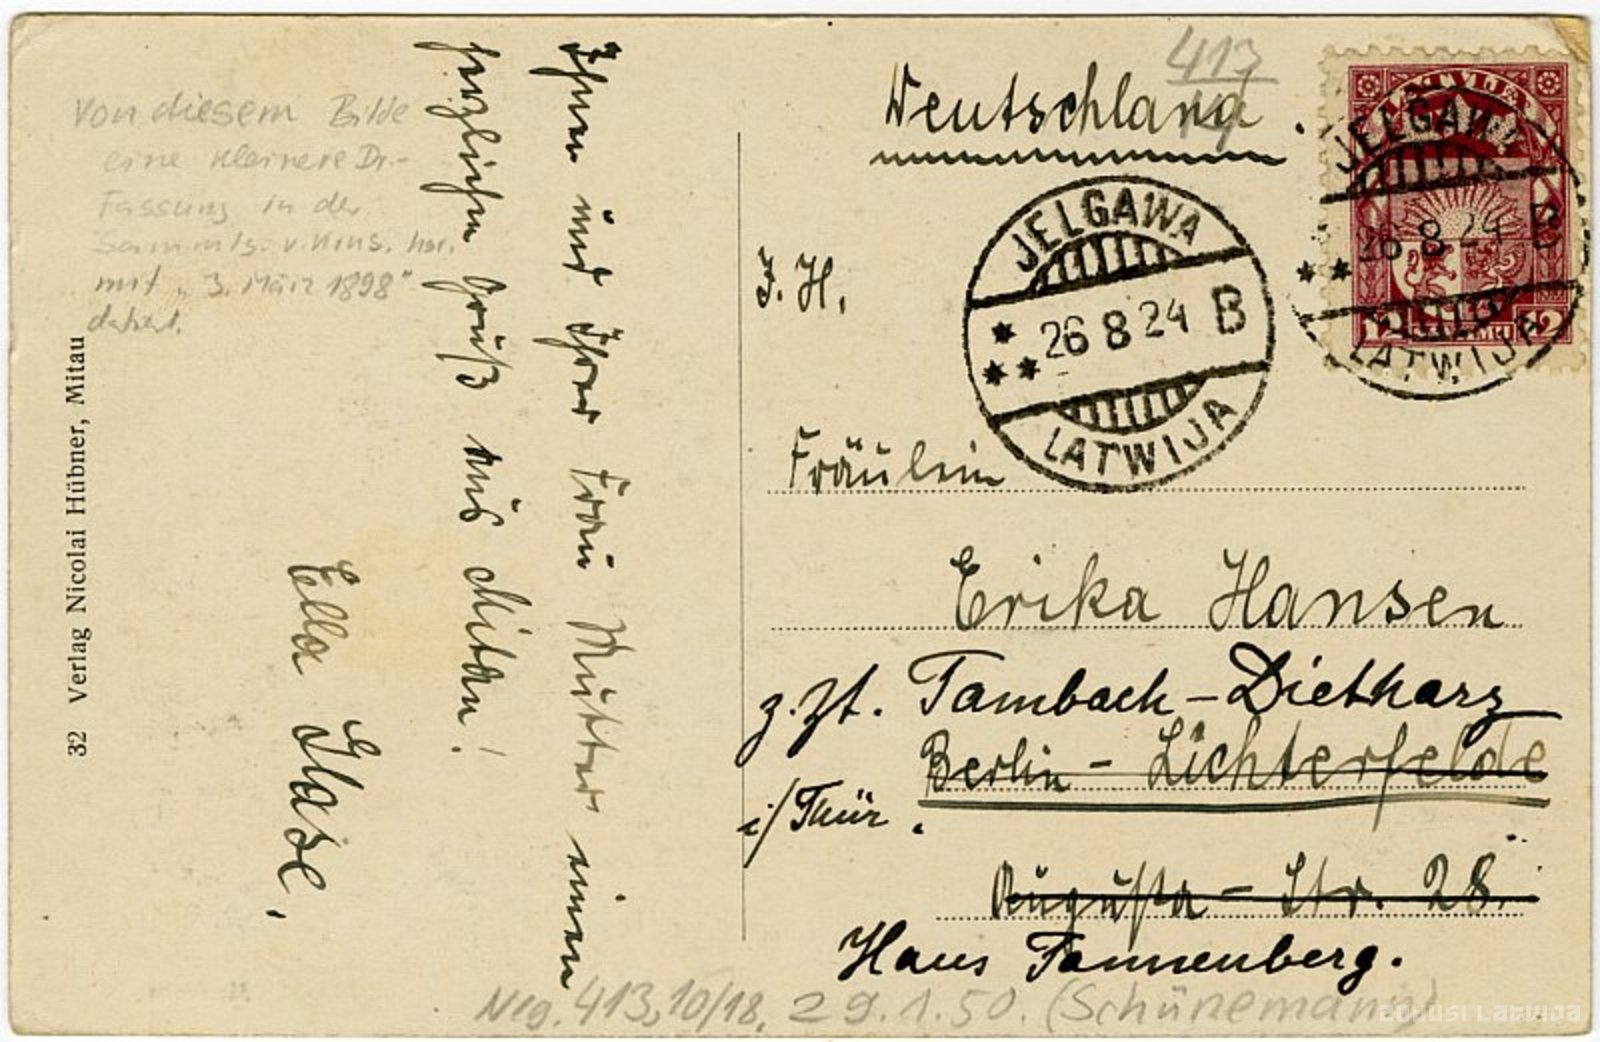 Von diesem Bilde
eine kleinere Dr.-
Fassung in der
Sammlg. v. Kms. hsr.
mit „3. März 1898"
datiert.
32 Verlag Nicolai Hübner, Mitau
Ihnen und Ihrer Frau Mutter einen
herzlichen Gruß aus Mitau!
Ella Glase.
413
14
Deutschland.
LATVIJEA
JELGAWA
26 8 24 B
LATWIJA
JELGAWA
26 8 24 B
LATWIJA
12 12
J. H.
Fräulein
Erika Hansen
z. Zt. Tambach-Dietharz
Berlin-Lichterfelde
i/Thür.
Augusta-Str. 28.
Haus Tannenberg.
Neg. 413,10/18. 29.1.50. (Schünemann)
zudusi Latvija